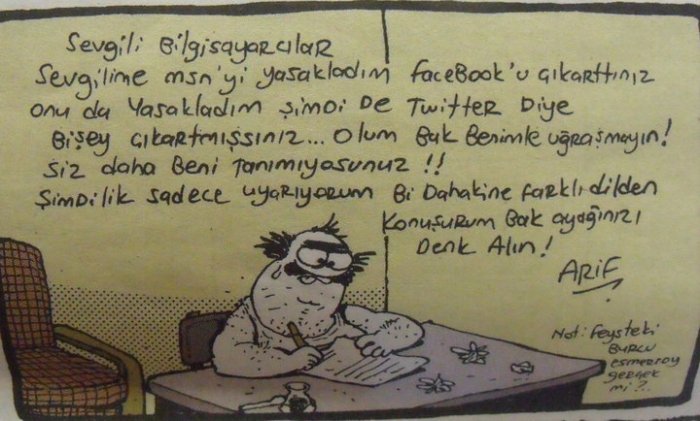 Sevgili Bilgisayarcılar
Sevgilime msn'yi yasakladım faceBook'u çıkarttınız
onu da Yasakladım şimdi de Twitter Diye
Bişey çıkartmışsınız... Olum Bak Benimle uğraşmayın!
siz daha Beni Tanımıyosunuz !!
Şimdilik sadece uyarıyorum Bi Dahakine farklı dilden
konuşurum Bak ayağınızı
Denk Alın!
ARİF
Not: feysteki
Burcu
esmersoy
gerçek
mi?..